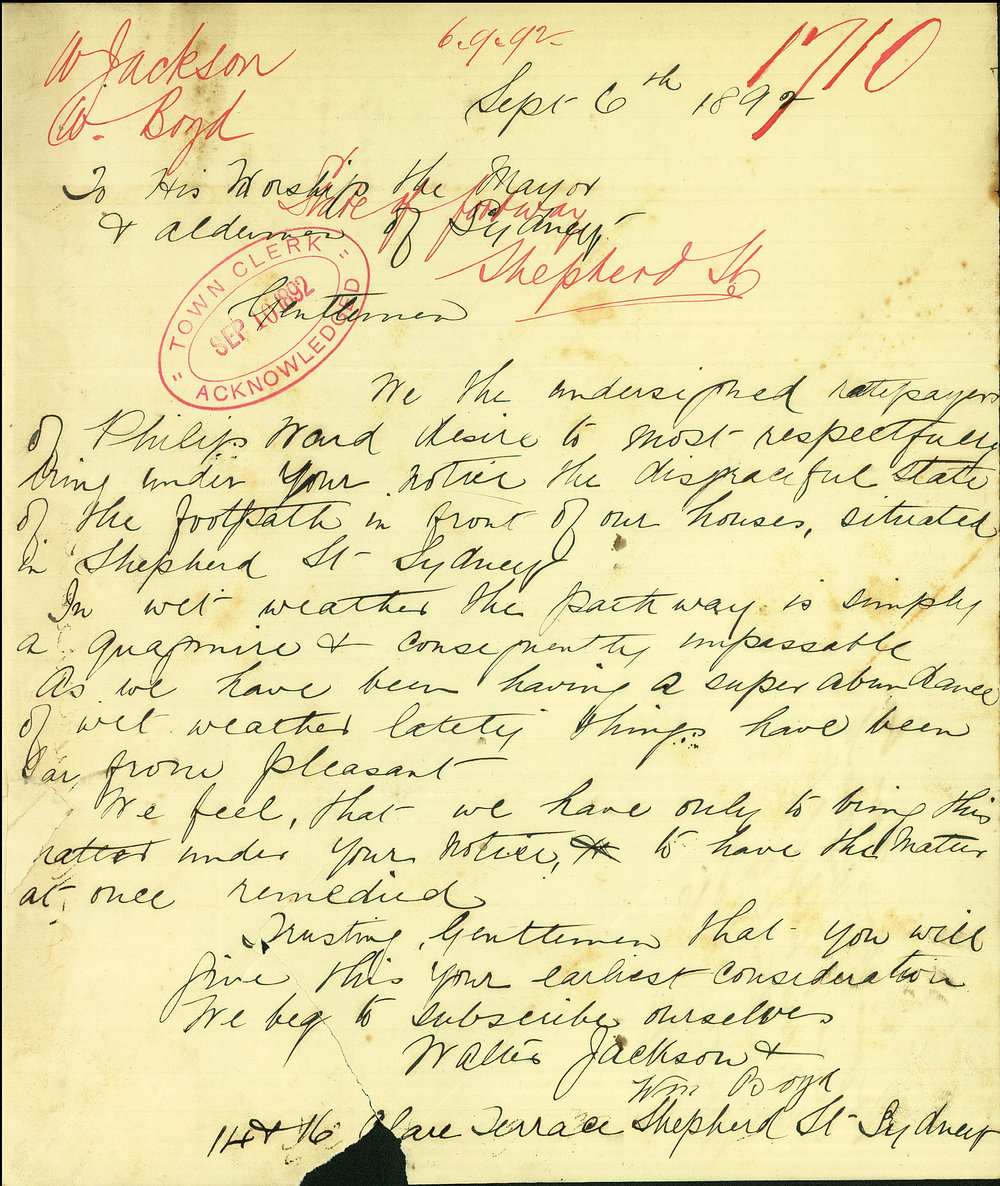 W Jackson
W. Boyd
6.9.92
1710
Sept 6th 1892
To His Worship the Mayor
& aldermen of Sydney,
State of footway
Shepherd St
TOWN CLERK
SEP 10 1892
ACKNOWLEDGED
Gentlemen
We the undersigned ratepayers
of Philip Ward desire to most respectfully
bring under your notice the disgraceful state
of the footpath in front of our houses, situated
in Shepherd St Sydney
In wet weather the pathway is simply
a quagmire & consequently impassable
As we have been having a super abundance
of wet weather lately things have been
far from pleasant
We feel, that we have only to bring this
matter under your notice, to have the matter
at once remedied
Trusting, Gentlemen that you will
give this your earliest consideration
We beg to subscribe ourselves
Walter Jackson &
Wm Boyd
14 & 16 Clare Terrace Shepherd St Sydney